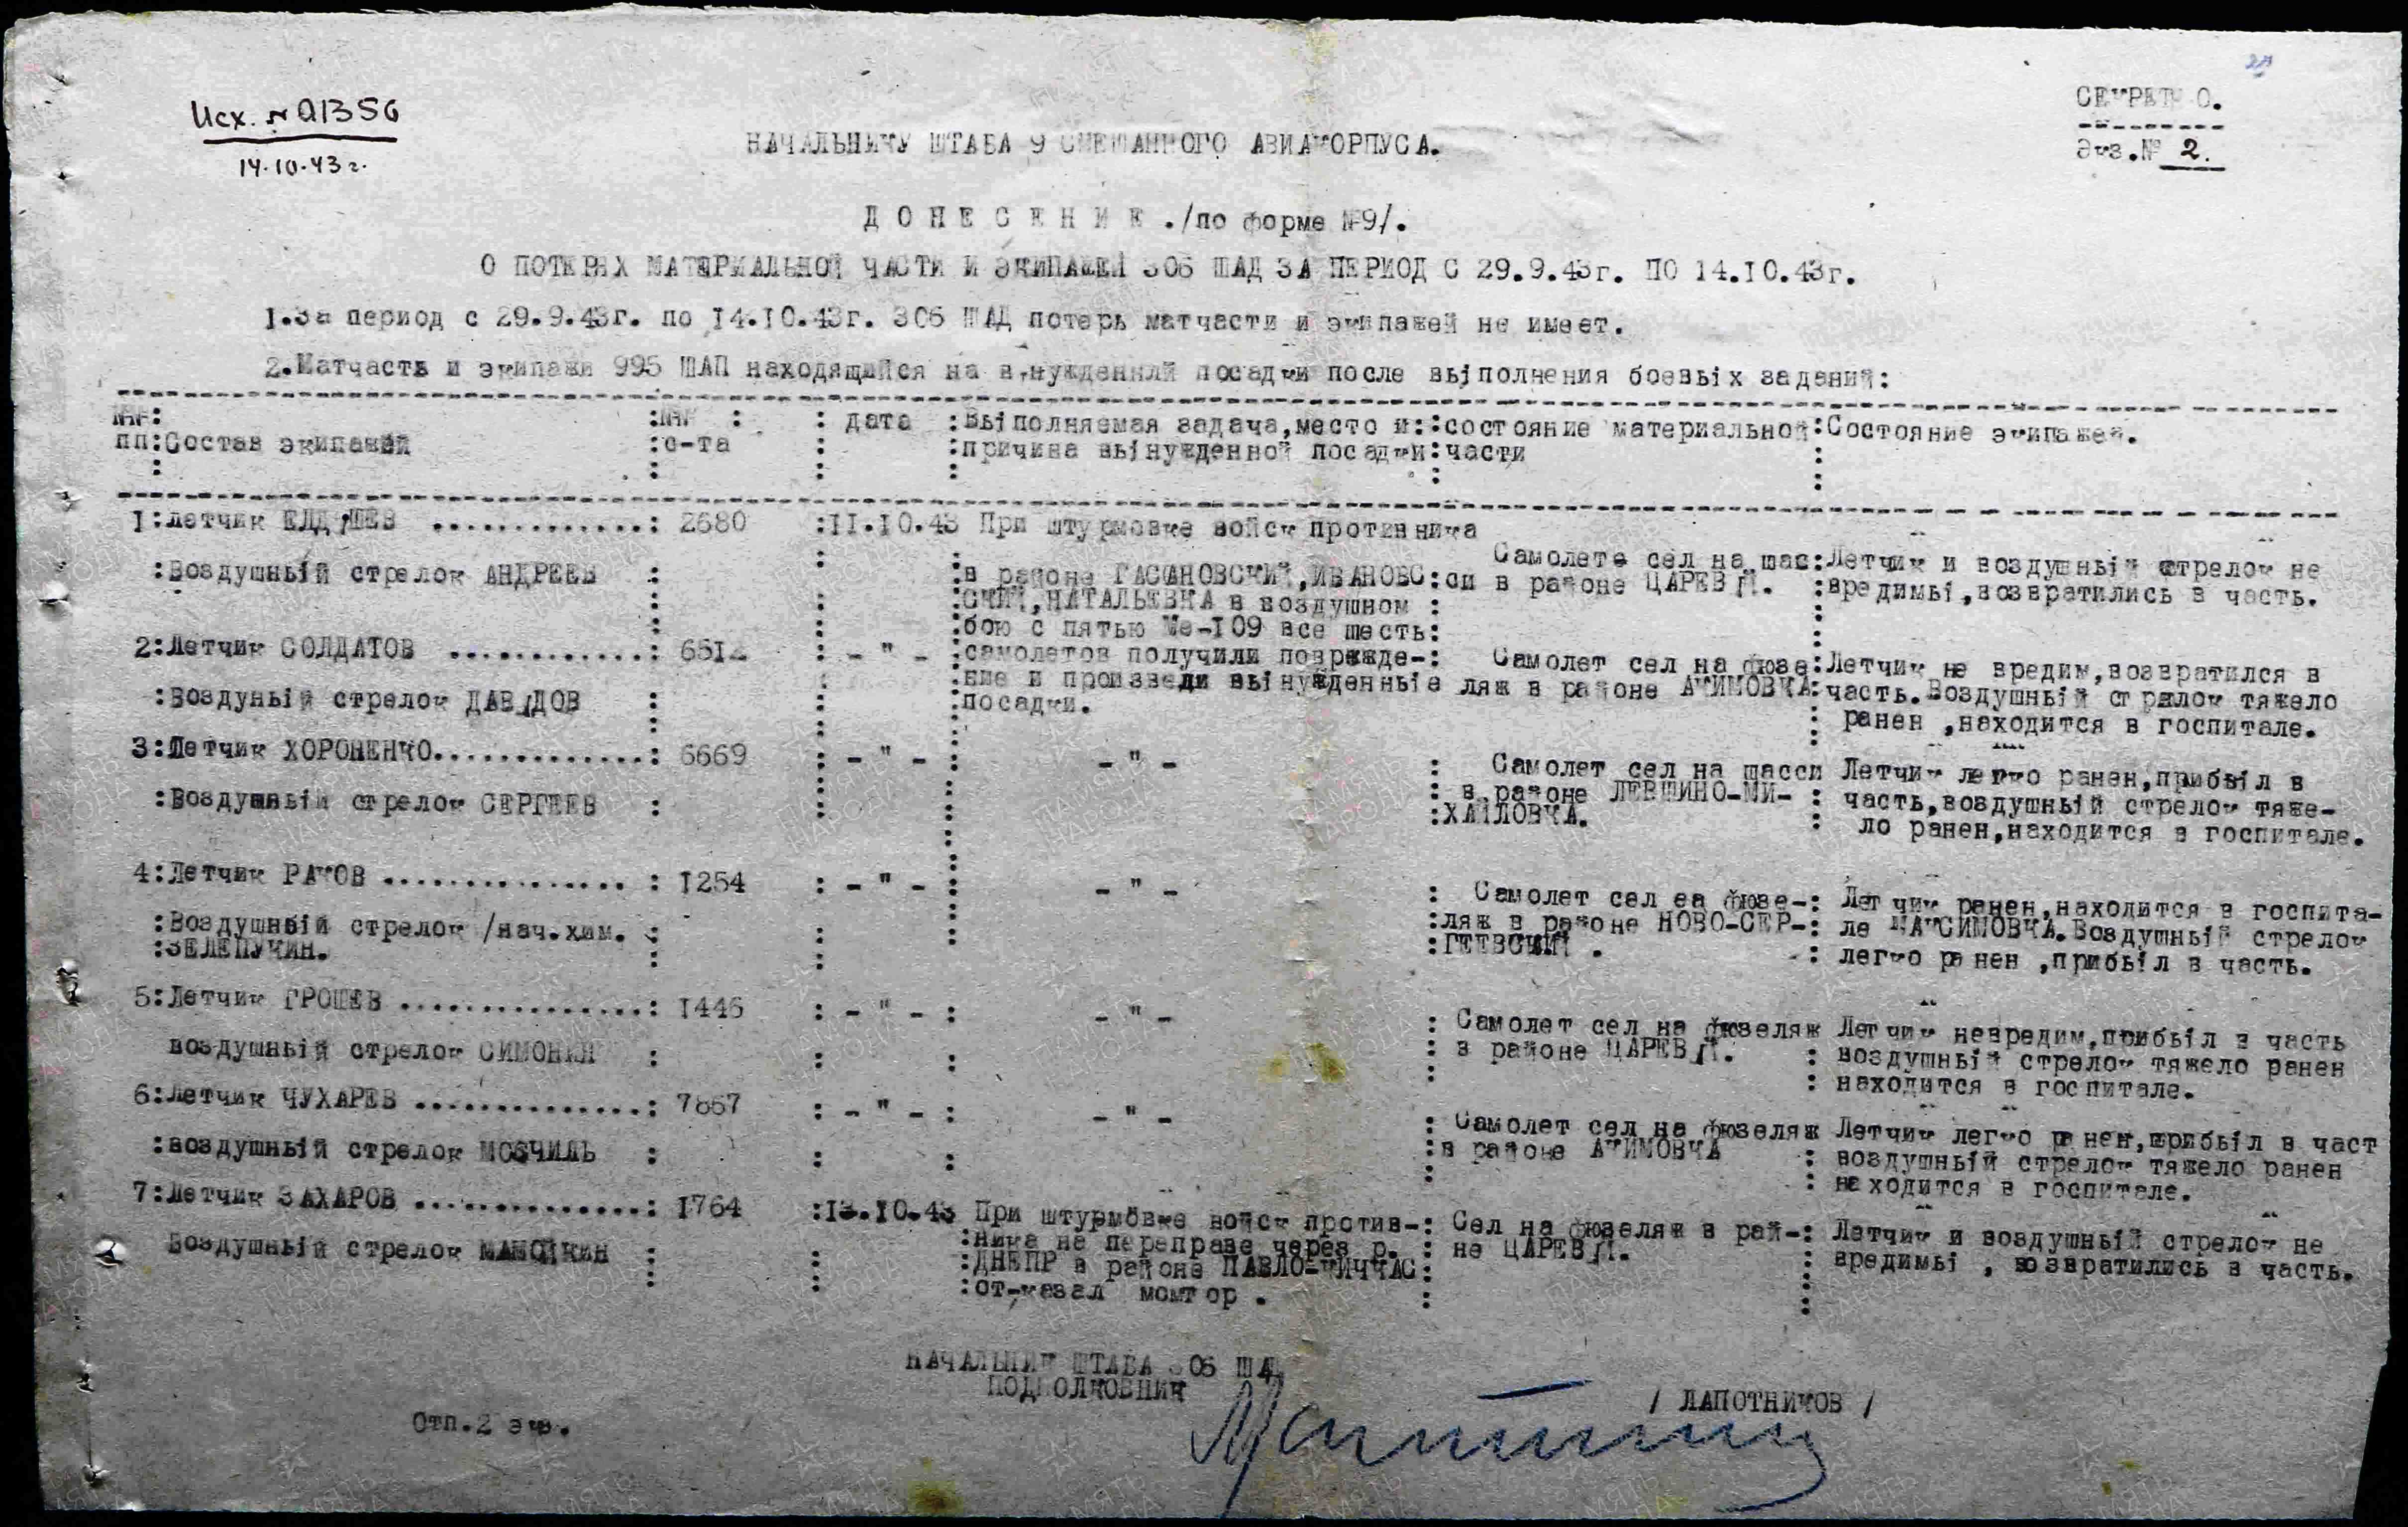 Исх. №01356
14.10.43г.
СЕКРЕТНО.
Экз.№ 2.
НАЧАЛЬНИКУ ШТАБА 9 СМЕШАННОГО АВИАКОРПУСА.
Д О Н Е С Е Н И Е ./по форме №9/.
О ПОТЕРЯХ МАТЕРИАЛЬНОЙ ЧАСТИ И ЭКИПАЖЕЙ 306 ШАД ЗА ПЕРИОД С 29.9.43г. ПО 14.10.43г.
1.За период с 29.9.43г. по 14.10.43г. 306 ШАД потерь матчасти и экипажей не имеет.
2.Матчасть и экипажи 995 ШАП находящийся на вынужденнлй посадки после выполнения боевых заданий:
№№: :№№ : : дата :Выполняемая задача,место и: :состояние материальной:Состояние экипажей.
пп:Состав экипажей :с-та : :причина вынужденной посадки:части
1:летчик ЕЛДЫШЕВ ..............: 2680 :11.10.43 При штурмовке войск противника
Самолете сел на шас:Летчик и воздушный стрелок не
:Воздушный стрелок АНДРЕЕВ : :в районе ГАСАНОВСКИЙ,ИВАНОВС:си в районе ЦАРЕВЫЙ. :вредимы,возвратились в часть.
:СКИЙ,НАТАЛЬЕВКА в воздушном :
:бою с пятью Ме-109 все шесть:
2:Летчик СОЛДАТОВ ............: 6512 : - " - :самолетов получили поврежде-: Самолет сел на фюзе:Летчик не вредим,возвратился в
:ние и произвели вынужденные ляж в районе АКИМОВКА:часть.Воздушный стрелок тяжело
:Воздуный стрелок ДАВЫДОВ : :посадки. ранен ,находится в госпитале.
3:Летчик ХОРОНЕНКО.............: 6669 : - " - : - " - : Самолет сел на шасси Летчик легко ранен,прибыл в
:Воздушный стрелок СЕРГЕЕВ : : в районе ЛЕВШИНО-МИ- : часть,воздушный стрелок тяже-
:ХАЙЛОВКА. : ло ранен,находится в госпитале.
4:Летчик РАКОВ ............... : 1254 : - " - : - " - : Самолет сел еа фюзе-: Летчик ранен,находится в госпита-
:Воздушный стрелок /нач.хим. : :ляж в районе НОВО-СЕР-: ле МАКСИМОВКА.Воздушный стрелок
:ЗЕЛЕПУКИН. : :ГЕЕВСКИЙ . : легко ранен ,прибыл в часть.
5:Летчик ГРОШЕВ ...............: 1446 : - " - : - " - : Самолет сел на фюзеляж Летчик невредим,прибыл в часть
воздушный стрелок СИМОНЯН : : в районе ЦАРЕВЫЙ. : воздушный стрелок тяжело ранен
: находится в госпитале.
6:Летчик ЧУХАРЕВ ..............: 7867 : - " - : - " - : Самолет сел на фюзеляж Летчик легко ранен,прибыл в част
:воздушный стрелок МОВЧИЛЬ : :в районе АКИМОВКА : воздушный стрелок тяжело ранен
: находится в госпитале.
7:Летчик ЗАХАРОВ ..............: 1764 :13.10.43 При штурмовке войск против-: Сел на фюзеляж в рай-: Летчик и воздушный стрелок не
Воздушный стрелок МАНОЙКИН : :ника не переправе через р. : не ЦАРЕВЫЙ. : вредимы , возвратились в часть.
:ДНЕПР в районе ПАВЛО-КИЧКАС:
:от-казал момтор .
НАЧАЛЬНИК ШТАБА 306 ШАД
ПОДПОЛКОВНИК
/ ЛАПОТНИКОВ /
Отп.2 экз.